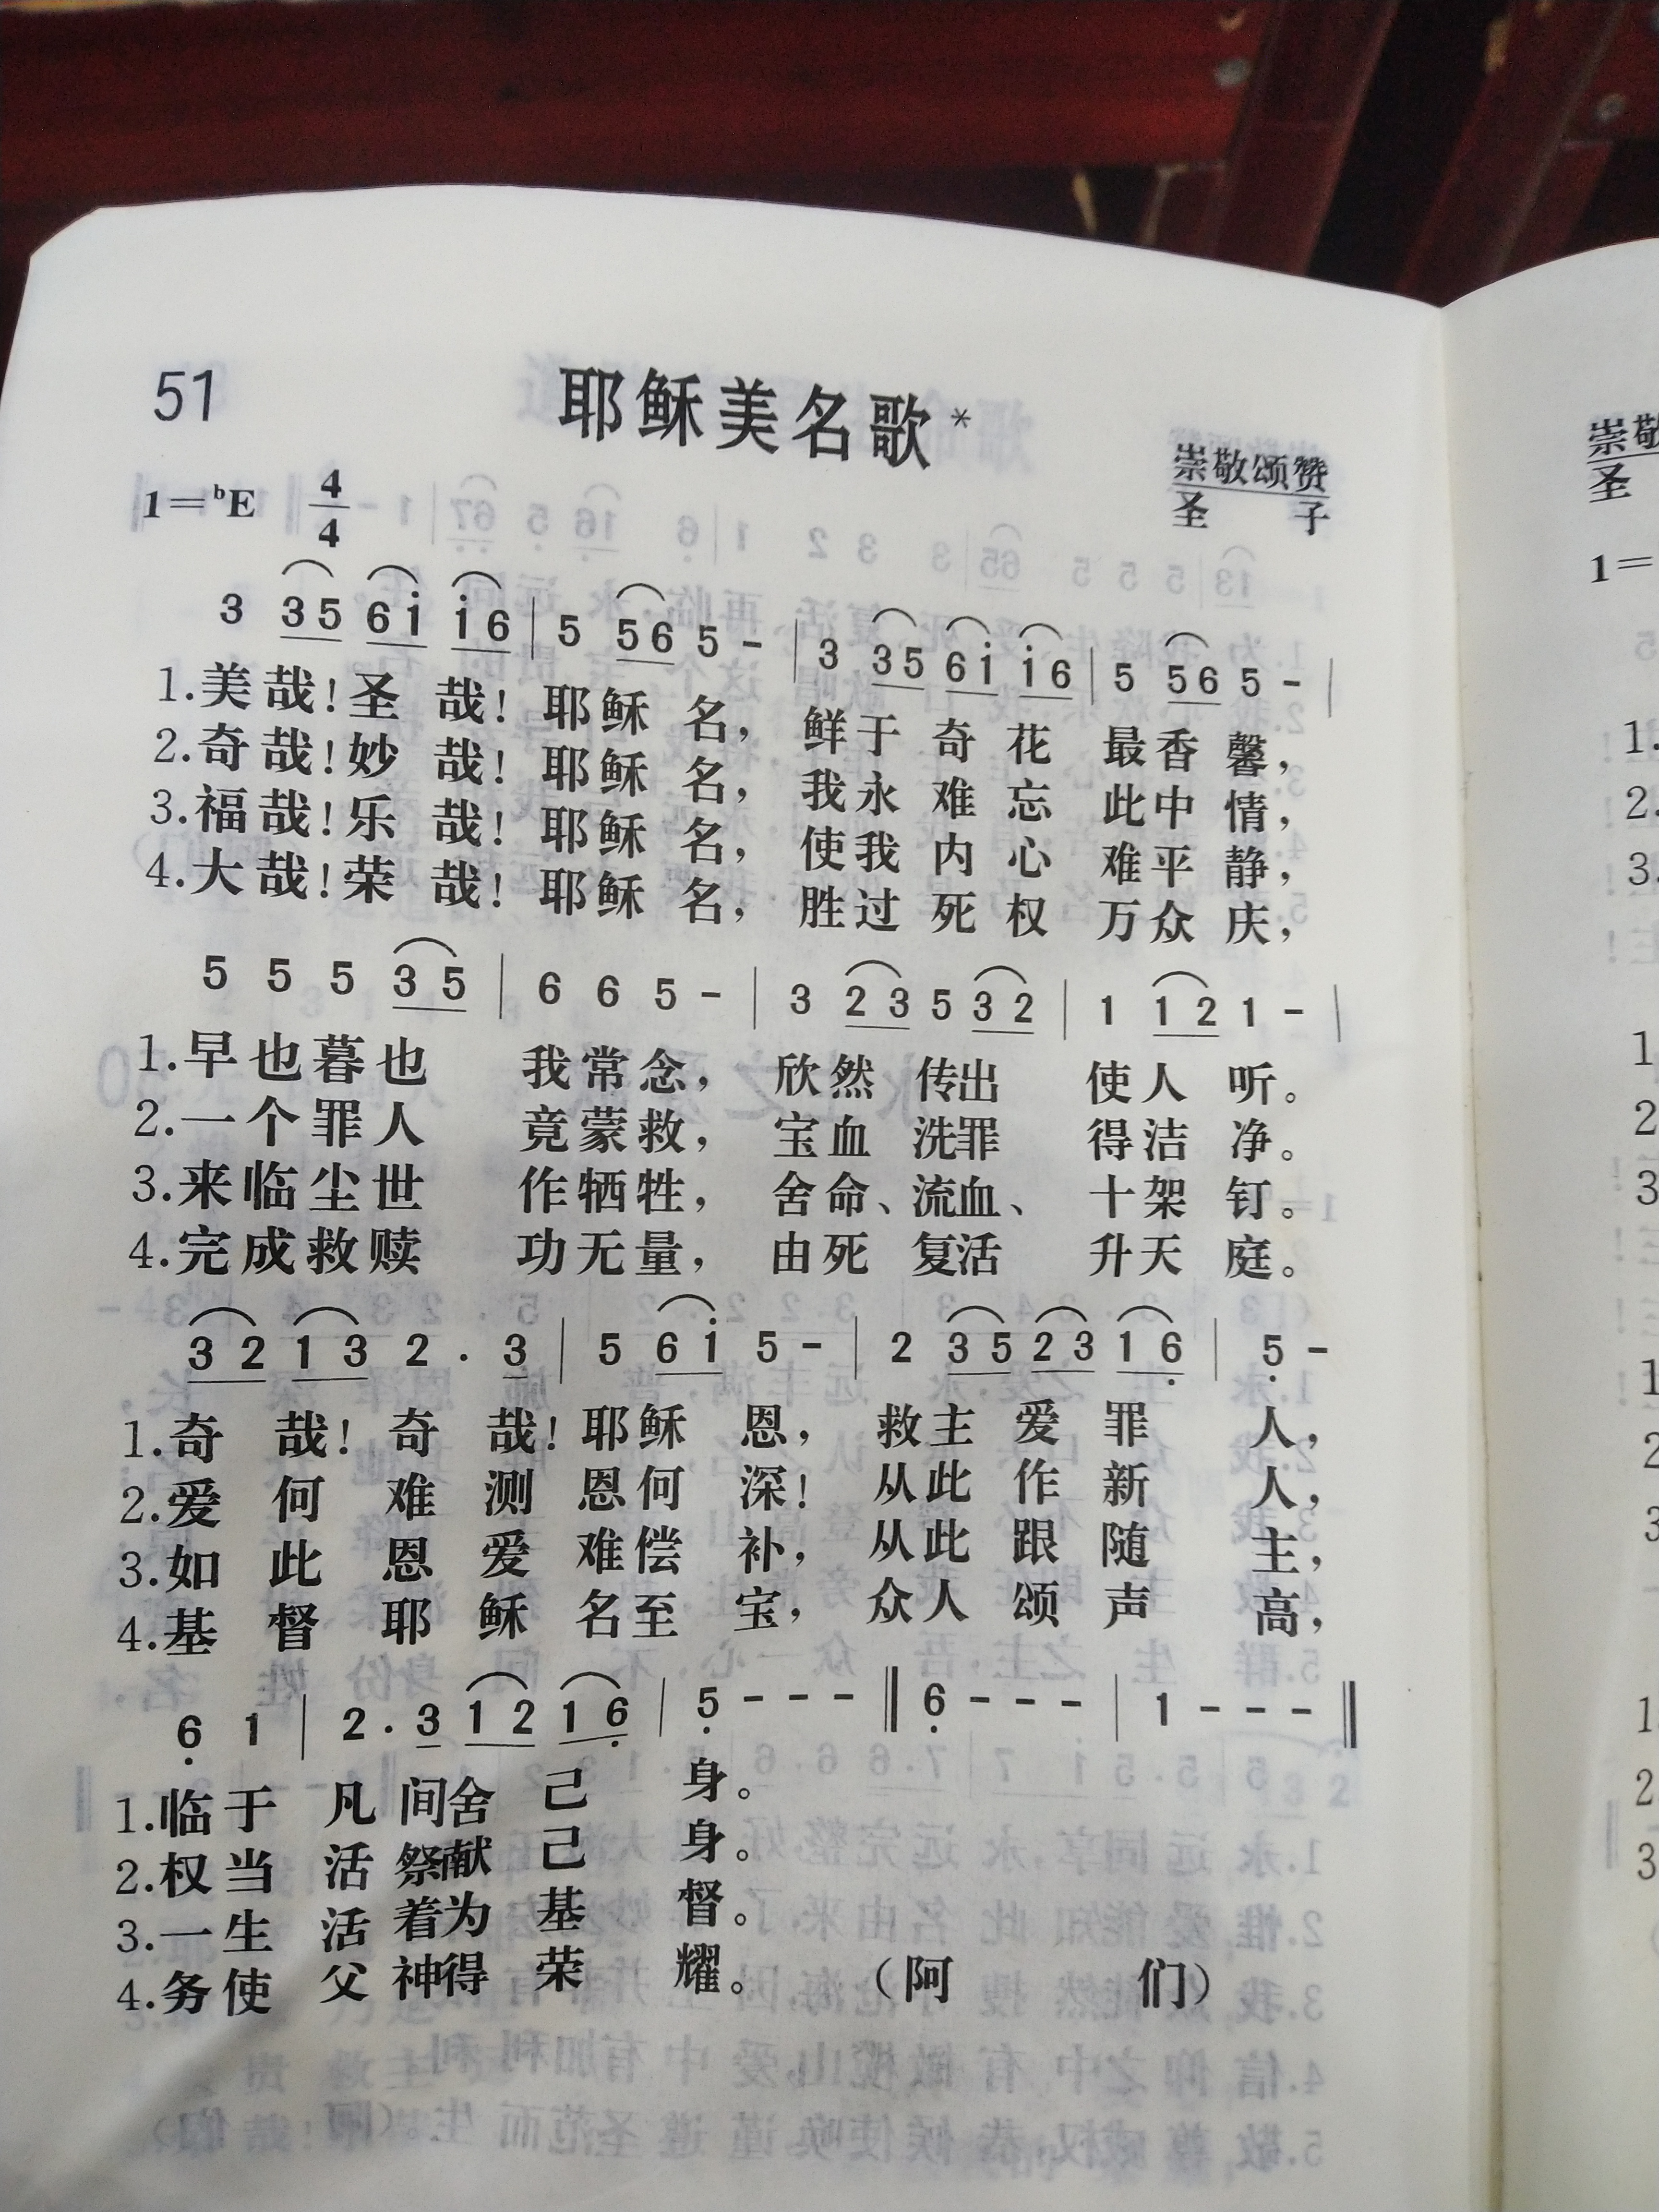 51
耶稣美名歌*
崇敬颂赞
圣 子
1=ᵇE 4/4
3 3 5 6 i i 6 | 5 5 6 5 - | 3 3 5 6 i i 6 | 5 5 6 5 - |
1.美哉!圣 哉! 耶稣 名, 鲜于 奇 花 最香 馨,
2.奇哉!妙 哉! 耶稣 名, 我永 难 忘 此中 情,
3.福哉!乐 哉! 耶稣 名, 使我 内 心 难平 静,
4.大哉!荣 哉! 耶稣 名, 胜过 死 权 万众 庆,
5 5 5 3 5 | 6 6 5 - | 3 2 3 5 3 2 | 1 1 2 1 - |
1.早也暮也 我常念, 欣然 传出 使人 听。
2.一个罪人 竟蒙救, 宝血 洗罪 得洁 净。
3.来临尘世 作牺牲, 舍命、流血、 十架 钉。
4.完成救赎 功无量, 由死 复活 升天 庭。
3 2 1 3 2 . 3 | 5 6 i 5 - | 2 3 5 2 3 1 6̣ | 5̣ -
1.奇 哉! 奇 哉! 耶稣 恩, 救主 爱 罪 人,
2.爱 何 难 测 恩何 深! 从此 作 新 人,
3.如 此 恩 爱 难偿 补, 从此 跟 随 主,
4.基 督 耶 稣 名至 宝, 众人 颂 声 高,
6̣ 1 | 2 . 3 1 2 1 6̣ | 5̣ - - - ‖ 6̣ - - - | 1 - - - ‖
1.临于 凡 间舍 己 身。
2.权当 活 祭献 己 身。
3.一生 活 着为 基 督。
4.务使 父 神得 荣 耀。 (阿 们)
崇敬
圣
1=